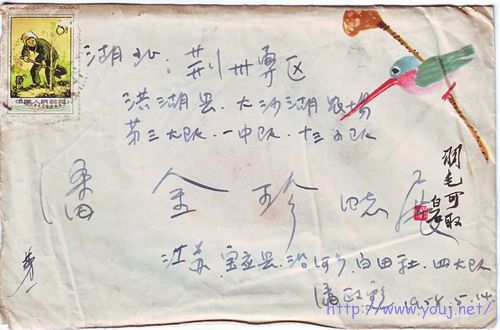 中国人民邮政
8
湖北．荆州专区
洪湖县．大沙湖农场
第三大队．一中队．十三小队
潘金珍
江苏．宝应县．沿河乡．白田社．四大队
1958.5.14.
羽毛可取
http://www.youj.net/